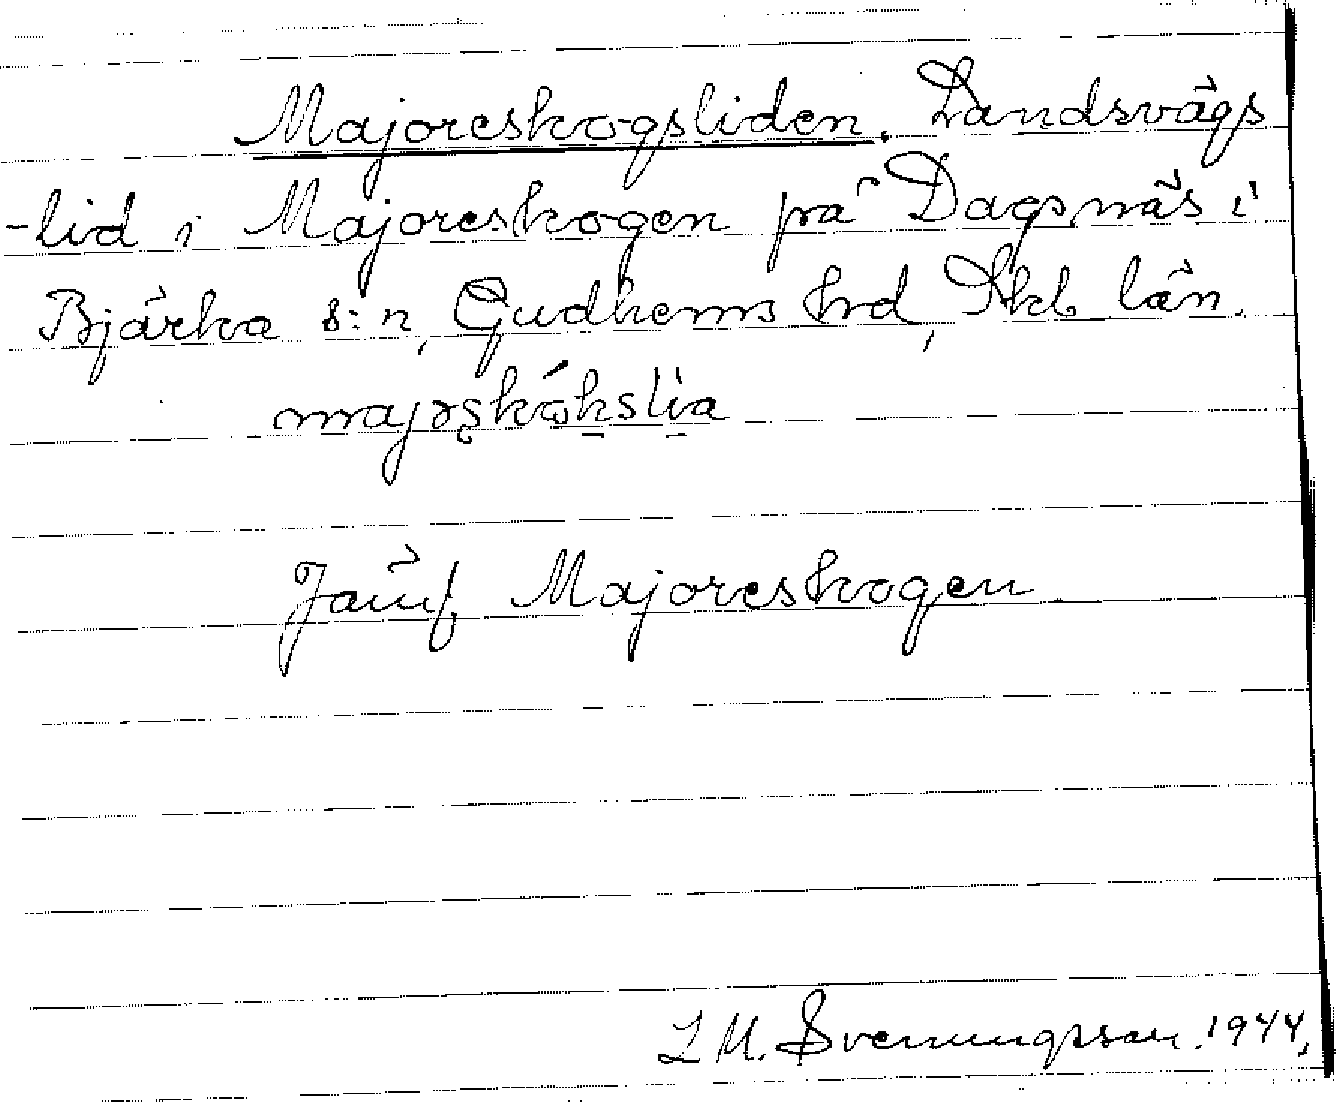 Majoreskogsliden. Landsvägs
-lid i Majoreskogen på Dagsnäs i
Bjärka s:n, Gudhems hrd, Skb län.
majrskókslia
Jämf Majoreskogen
L M. Svenungsson. 1944,